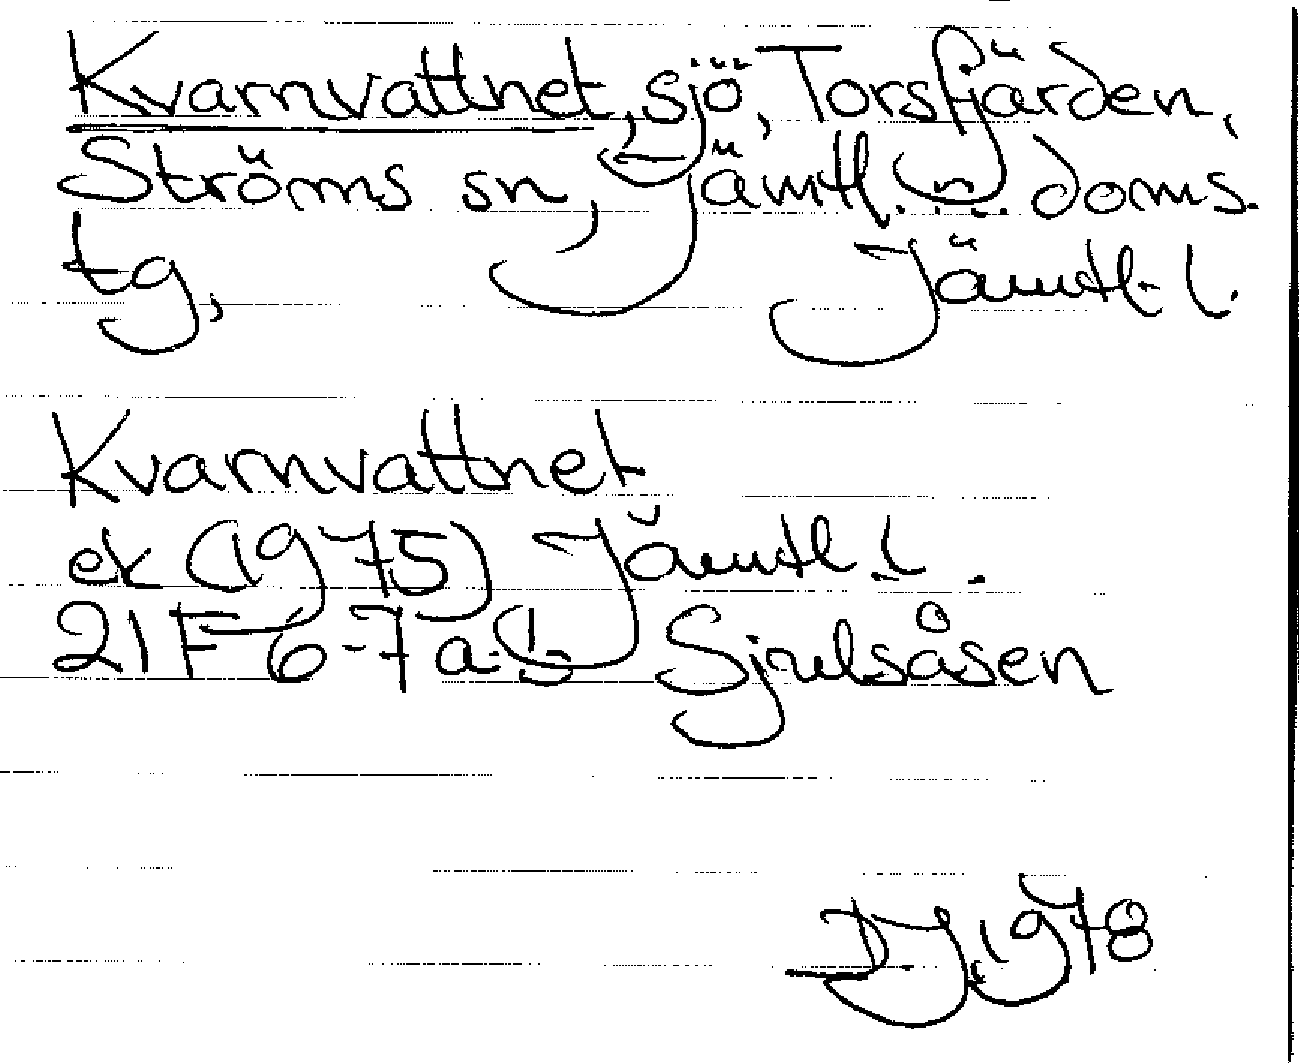 Kvarnvattnet, sjö, Torsfjärden,
Ströms sn, Jämtl. n. doms.
tg, Jämtl. l.
Kvarnvattnet
ek (1975) Jämtl. l.
21 F 6-7 a-b Sjulsåsen
DJ 1978